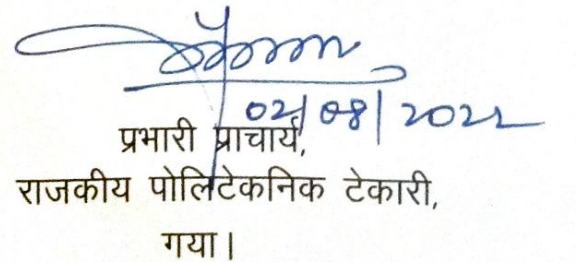 02/08/2022
प्रभारी प्राचार्य,
राजकीय पोलिटेकनिक टेकारी,
गया।